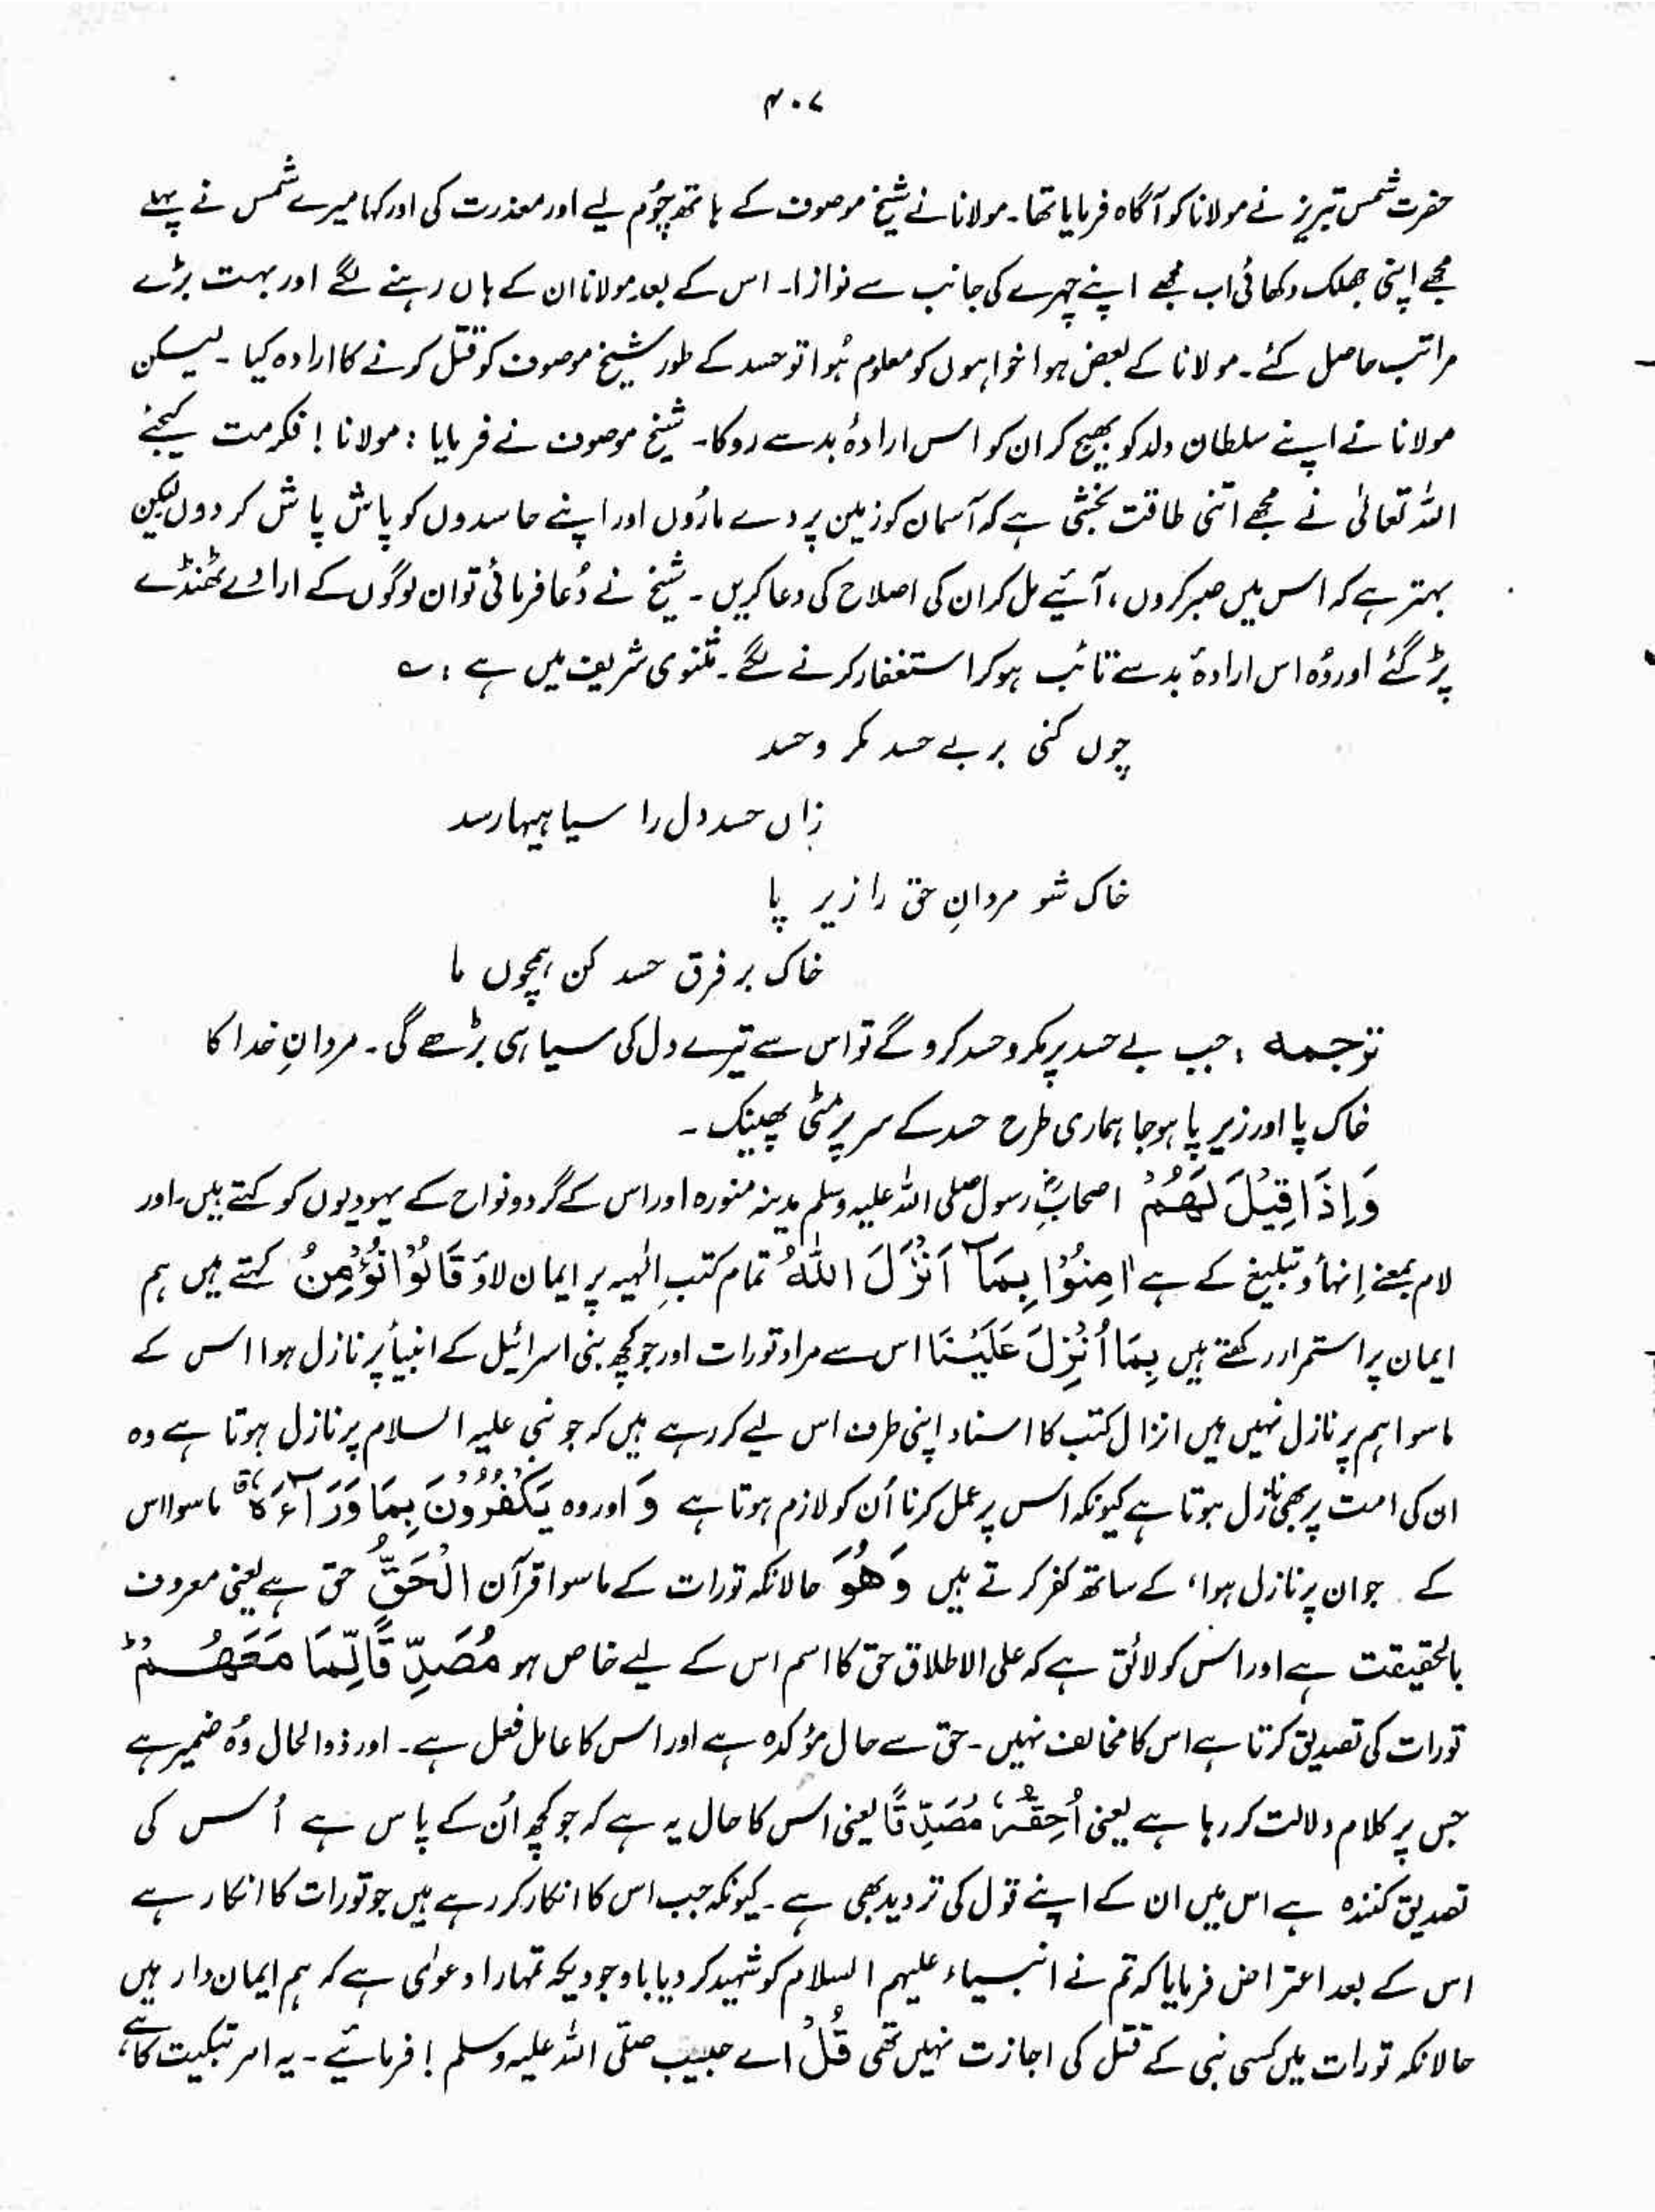 ۴۰۷
حضرت شمس تبریز نے مولانا کو آگاہ فرمایا تھا۔ مولانا نے شیخ موصوف کے ہاتھ چُوم لیے اور معذرت کی اور کہا میرے شمس نے پہلے
مجھے اپنی جھلک دکھائی اب مجھے اپنے چہرے کی جانب سے نوازا۔ اس کے بعد مولانا ان کے ہاں رہنے لگے اور بہت بڑے
مراتب حاصل کئے۔ مولانا کے بعض ہوا خواہوں کو معلوم ہُوا تو حسد کے طور شیخ موصوف کو قتل کرنے کا ارادہ کیا۔ لیسکن
مولانا نے اپنے سلطان ولد کو بھیج کر ان کو اس ارادۂ بد سے روکا۔ شیخ موصوف نے فرمایا : مولانا ! فکر مت کیجئے
اللہ تعالیٰ نے مجھے اتنی طاقت بخشی ہے کہ آسمان کو زمین پر دے ماروُں اور اپنے حاسدوں کو پاش پاش کر دوں لیکن
بہتر ہے کہ اس میں صبر کروں، آئیے مل کر ان کی اصلاح کی دعا کریں۔ شیخ نے دُعا فرمائی تو ان لوگوں کے ارادے ٹھنڈے
پڑ گئے اور وُہ اس ارادۂ بد سے تائب ہو کر استغفار کرنے لگے۔ مثنوی شریف میں ہے : ؎
چوں کنی بر بے حسد مکر و حسد
زاں حسد دل را سیاہیہا رسد
خاک شو مردانِ حق را زیر پا
خاک بر فرق حسد کن ہمچوں ما
ترجمہ : جب بے حسد پر مکر و حسد کرو گے تو اس سے تیرے دل کی سیاہی بڑھے گی۔ مردانِ خدا کا
خاک پا اور زیر پا ہو جا ہماری طرح حسد کے سر پر مٹی پھینک۔
وَاِذَا قِیْلَ لَهُمْ اصحابِؓ رسول صلی اللہ علیہ وسلم مدینہ منورہ اور اس کے گرد و نواح کے یہودیوں کو کہتے ہیں۔ اور
لام بمعنے اِنہأ و تبلیغ کے ہے اٰمِنُوْا بِمَآ اَنْزَلَ اللّٰهُ تمام کتبِ الٰہیہ پر ایمان لاؤ قَالُوْا نُؤْمِنُ کہتے ہیں ہم
ایمان پر استمرار رکھتے ہیں بِمَا اُنْزِلَ عَلَیْنَا اس سے مراد تورات اور جو کچھ بنی اسرائیل کے انبیأ پر نازل ہوا اس کے
ماسوا ہم پر نازل نہیں ہیں انزال کتب کا اسناد اپنی طرف اس لیے کر رہے ہیں کہ جو نبی علیہ السلام پر نازل ہوتا ہے وہ
ان کی امت پر بھی نازل ہوتا ہے کیونکہ اس پر عمل کرنا اُن کو لازم ہوتا ہے وَ اور وہ یَكْفُرُوْنَ بِمَا وَرَآءَهٗ ماسوا اس
کے جو ان پر نازل ہوا، کے ساتھ کفر کرتے ہیں وَهُوَ حالانکہ تورات کے ماسوا قرآن الْحَقُّ حق ہے یعنی معروف
بالحقیقت ہے اور اس کو لائق ہے کہ علی الاطلاق حق کا اسم اس کے لیے خاص ہو مُصَدِّقًا لِّمَا مَعَهُمْ ؕ
تورات کی تصدیق کرتا ہے اس کا مخالف نہیں۔ حق سے حال مؤکدہ ہے اور اس کا عامل فعل ہے۔ اور ذوالحال وُہ ضمیر ہے
جس پر کلام دلالت کر رہا ہے یعنی اُحِقُّہٗ مُصَدِّقًا یعنی اس کا حال یہ ہے کہ جو کچھ اُن کے پاس ہے اُس کی
تصدیق کنندہ ہے اس میں ان کے اپنے قول کی تردید بھی ہے۔ کیونکہ جب اس کا انکار کر رہے ہیں جو تورات کا انکار ہے
اس کے بعد اعتراض فرمایا کہ تم نے انبیاء علیہم السلام کو شہید کر دیا باوجودیکہ تمہارا دعوٰی ہے کہ ہم ایمان دار ہیں
حالانکہ تورات میں کسی نبی کے قتل کی اجازت نہیں تھی قُلْ اے حبیب صلّی اللہ علیہ وسلم ! فرمائیے۔ یہ امر تبکیت کا ہے،